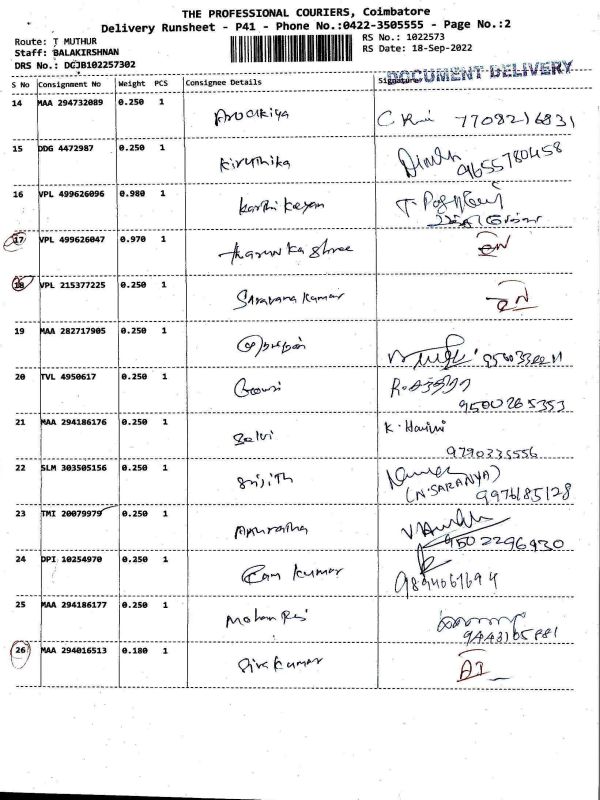 THE PROFESSIONAL COURIERS, Coimbatore
Delivery Runsheet - P41 - Phone No.:0422-3505555 - Page No.:2
Route: T MUTHUR
RS No.: 1022573
Staff: BALAKIRSHNAN
RS Date: 18-Sep-2022
DRS No.: DCJB102257302
DOCUMENT DELIVERY
S No Consignment No Weight PCS Consignee Details Signature
14 MAA 294732089 0.250 1 7708216831
15 DDG 4472987 0.250 1 Kiruthika 9655780458
16 VPL 499626096 0.980 1 Karthikeyan
17 VPL 499626047 0.970 1 tharunika shree
18 VPL 215377225 0.250 1 Saravana kumar
19 MAA 282717905 0.250 1
20 TVL 4950617 0.250 1 Gowri
9500265353
21 MAA 294186176 0.250 1 Selvi K. Harini
9790335556
22 SLM 303505156 0.250 1 Srijith
(N.SARANYA) 9976185128
23 TMI 20079979 0.250 1 Anuratha
9502296930
24 DPI 10254970 0.250 1 Ram kumar
9894061694
25 MAA 294186177 0.250 1 Mohan Raj
9443105881
26 MAA 294016513 0.180 1 Siva kumar